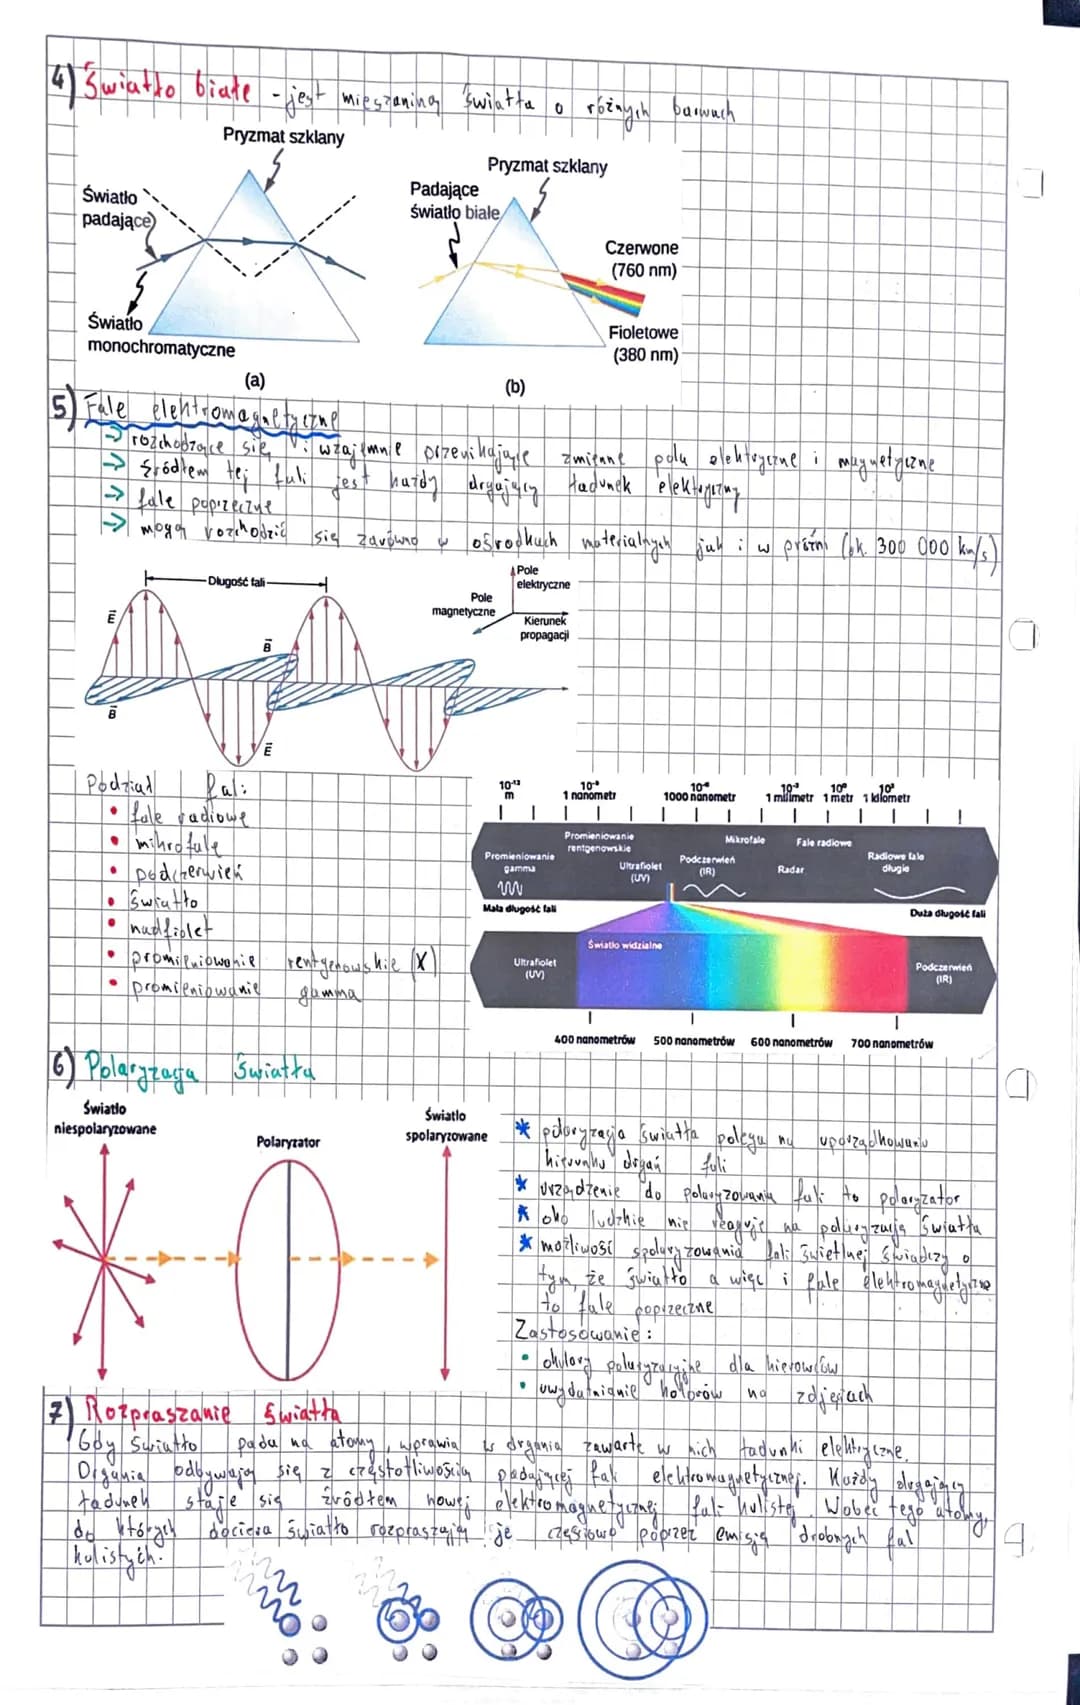 4) Światło białe - jest mieszaniną światła o różnych barwach
Pryzmat szklany
Światło
padające
Światło
monochromatyczne
(a)
Pryzmat szklany
Padające
światło białe
Czerwone
(760 nm)
Fioletowe
(380 nm)
(b)
5) Fale elektromagnetyczne
→ rozchodzące się i wzajemnie przenikające zmienne pola elektryczne i magnetyczne
→ źródłem tej fali jest każdy drgający ładunek elektryczny
→ fale poprzeczne
→ mogą rozchodzić się zarówno w ośrodkach materialnych jak i w próżni (ok. 300 000 km/s)
Długość fali
E
B
B
E
Pole
elektryczne
Pole
magnetyczne
Kierunek
propagacji
Podział fal:
• fale radiowe
• mikrofale
• podczerwień
• światło
• nadfiolet
• promieniowanie rentgenowskie (X)
• promieniowanie gamma
10⁻¹³
m
10⁻⁹
1 nanometr
10⁻⁶
1000 nanometr
10⁻³
1 milimetr
10⁰
1 metr
10³
1 kilometr
Promieniowanie
gamma
Promieniowanie
rentgenowskie
Ultrafiolet
(UV)
Podczerwień
(IR)
Mikrofale
Radar
Fale radiowe
Radiowe fale
długie
Mała długość fali
Duża długość fali
Ultrafiolet
(UV)
Światło widzialne
Podczerwień
(IR)
400 nanometrów 500 nanometrów 600 nanometrów 700 nanometrów
6) Polaryzacja światła
Światło
niespolaryzowane
Polaryzator
Światło
spolaryzowane
* polaryzacja światła polega na uporządkowaniu
kierunku drgań fali
* urządzenie do polaryzowania fali to polaryzator
* oko ludzkie nie reaguje na polaryzację światła
* możliwość spolaryzowania fali świetlnej świadczy o
tym, że światło a więc i fale elektromagnetyczne
to fale poprzeczne
Zastosowanie:
• okulary polaryzacyjne dla kierowców
• uwydatnianie kolorów na zdjęciach
7) Rozpraszanie światła
Gdy światło pada na atomy, wprawia w drgania zawarte w nich ładunki elektryczne.
Drgania odbywają się z częstotliwością padającej fali elektromagnetycznej. Każdy drgający
ładunek staje się źródłem nowej elektromagnetycznej fali kulistej. Wobec tego atomy,
do których dociera światło rozpraszają je częściowo poprzez emisję drobnych fal
kulistych.